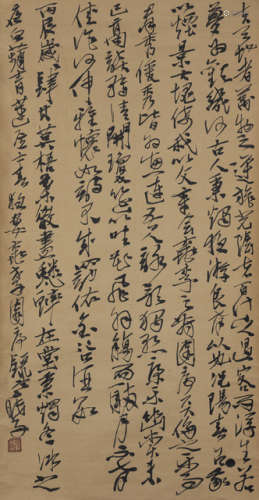 夫天地者萬物之逆旅光陰者百代之過客而浮生若
夢為歡幾何古人秉燭夜遊良有以也況陽春召我
以煙景大塊假我以文章會桃李之芳園序天倫之樂事
群季俊秀皆為惠連吾人詠歌獨慚康樂幽賞未
已高談轉清開瓊筵以坐花飛羽觴而醉月不有
佳作何伸雅懷如詩不成罰依金谷酒數
丙辰歲肆月
春夜宴桃李園序